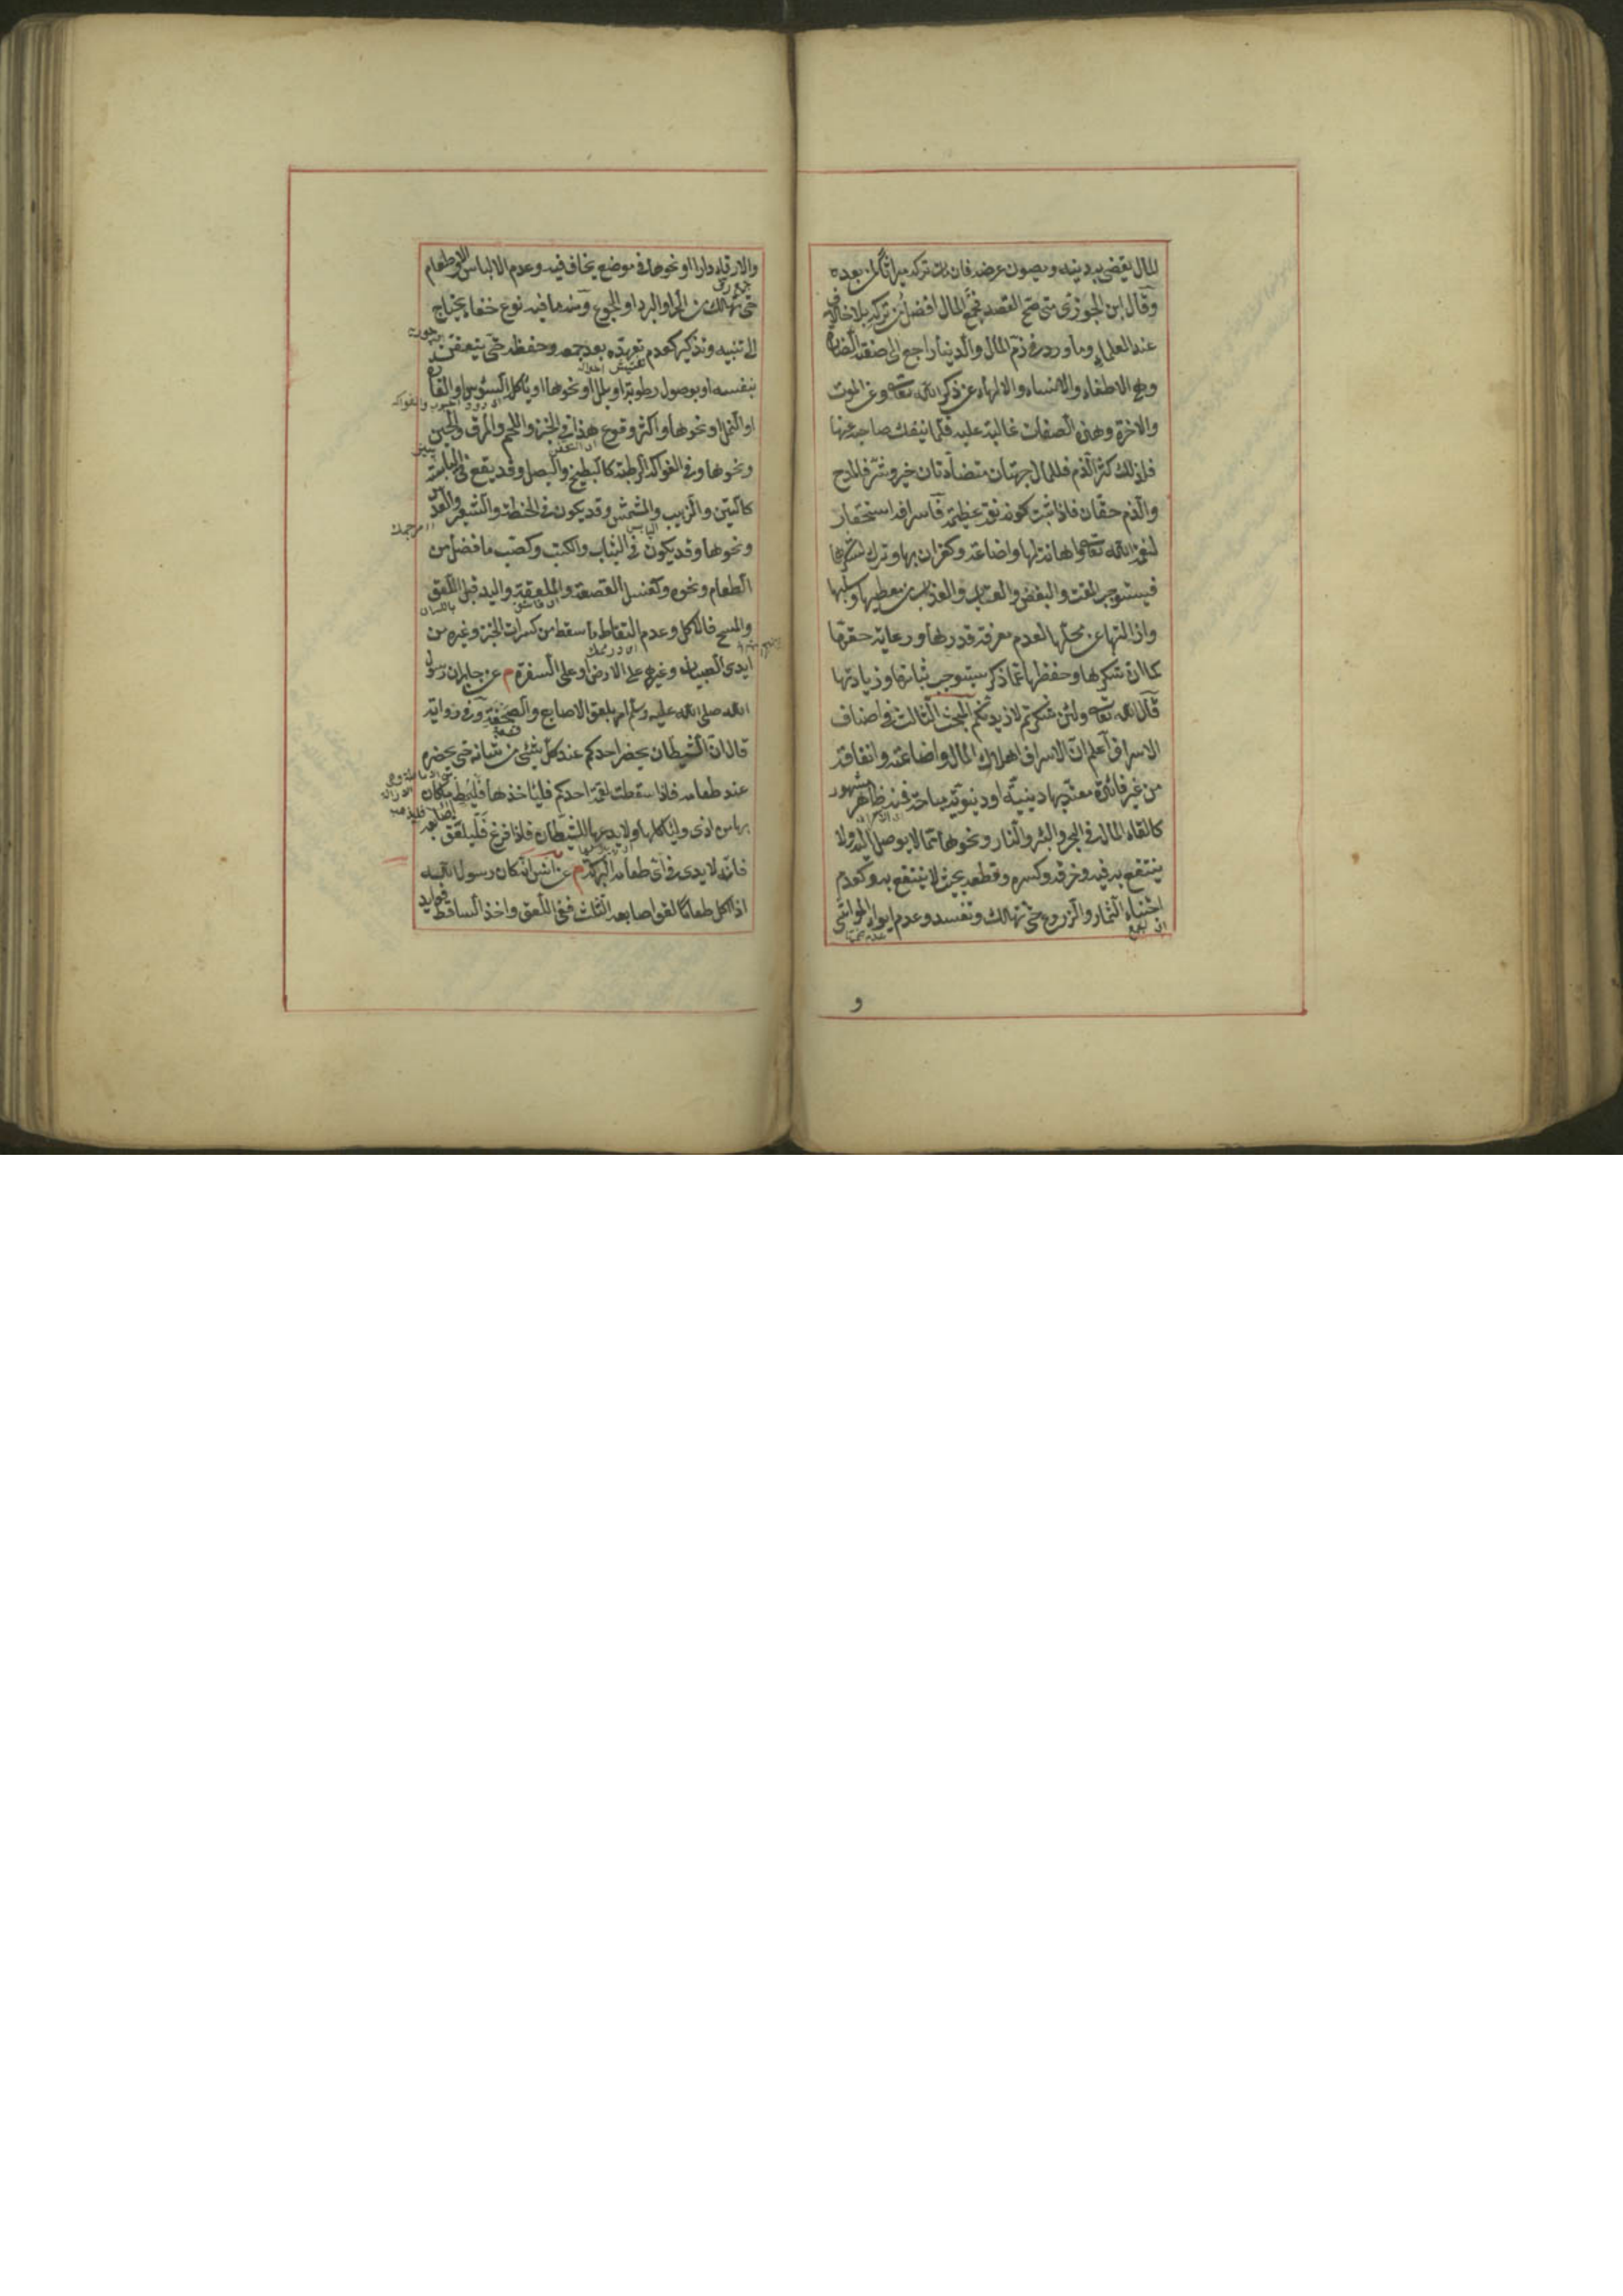 المال يقضى به دينه ويصون عرضه فان مات تركه ميراثا لمن بعده
وقال ابن الجوزى متى صح القصد فجمع المال افضل من تركه بلا خلاف
عند العلماء وما ورد فى ذم المال والدنيا راجع الى صفته الضارة
وهو الاطغاء والانساء والالهاء عن ذكر الله تعالى وعن الموت
والاخرة وهذه الصفات غالبة عليه فلما ينفك صاحبه عنها
فلذلك كثر الذم فللمال جهتان متضادتان خير وشر فالمدح
والذم حقان فاذا ثبت كونه نعمة عظيمة فاسرافه استحقار
لنعمة الله تعالى واهانة لها واضاعة وكفران بها وترك لشكرها
فيستوجب المقت والبغض والعتاب والعذاب من معطيها وسلبها
وازالتها عن محلها لعدم معرفة قدرها ورعاية حقها
كما ان شكرها وحفظها عما ذكر يستوجب ثباتها وزيادتها
قال الله تعالى ولئن شكرتم لازيدنكم المبحث الثالث فى اصناف
الاسراف اعلم ان الاسراف اهلاك المال واضاعته وانفاقه
من غير فائدة معتد بها دينية او دنيوية مباحة فمنه ظاهر مشهور
كالقاء المال فى البحر والبئر والنار ونحوها مما لا يوصل اليه ولا
ينتفع به فيه وخرقه وكسره وقطعه بحيث لا ينتفع به وكعدم
اجتناء الثمار والزروع حتى تهلك وتفسد وعدم ايواء المواشى
اى جمع
و
والارقاء دارا او نحوها فى موضع يخاف فيه وعدم الالباس والاطعام
جمع رق
حتى تهلك من الحر او البرد او الجوع ومنه ما فيه نوع خفاء يحتاج
الى تنبيه وتذكير كعدم تعهده بعد جمعه وحفظه حتى يتعفن
بنفسه او بوصول رطوبة او بلل او نحوها او ياكل السوس او الفارة
او النمل او نحوها واكثر وقوع هذا فى الخبز واللحم والمرق والجبن
ونحوها وفى الفواكه الرطبة كالبطيخ والبصل وقد يقع فى اليابسة
كالتين والزبيب والمشمش وقد يكون فى الحنطة والشعير والعدس
ونحوها وقد يكون فى الثياب والكتب وكصب ما فضل من
الطعام ونحوه وكغسل القصعة والملعقة واليد قبل اللعق
والمسح فالاكل وعدم التقاط ما سقط من كسرات الخبز وغيره من
ايدى الصبيان وغيرهم على الارض او على السفرة م عن جابر ان رسول
الله صلى الله عليه وسلم امر بلعق الاصابع والصحفة وفى رواية
قال ان الشيطان يحضر احدكم عند كل شئ من شانه حتى يحضره
عند طعامه فاذا سقطت لقمة احدكم فلياخذها فليمط ما كان
بها من اذى ولياكلها ولا يدعها للشيطان فاذا فرغ فليلعق اصابعه
فانه لا يدرى فى اى طعامه البركة م عن انس انه كان رسول الله
اذا اكل طعاما لعق اصابعه الثلث ففى اللعق واخذ الساقط